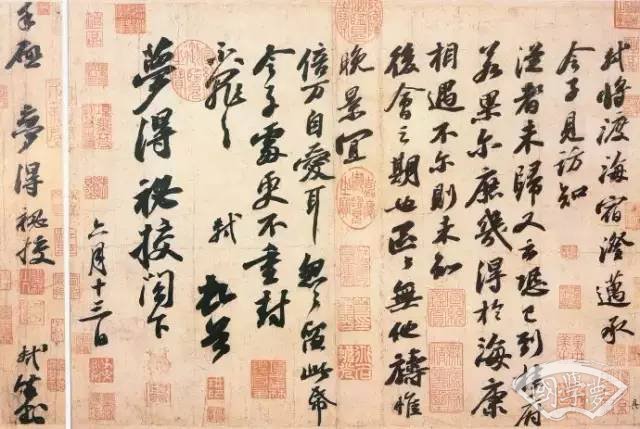 軾將渡海宿澄邁承
令子見訪知
從者未歸又云恐已到桂府
若果尔庶幾得於海康
相遇不尔則未知
後會之期也區々無他禱惟
晚景宜
倍万自愛耳怱々留此帋
令子處更不重封
不罪々 軾頓首
夢得祕校閣下
六月十三日
手啟 夢得祕校 軾封
國學夢